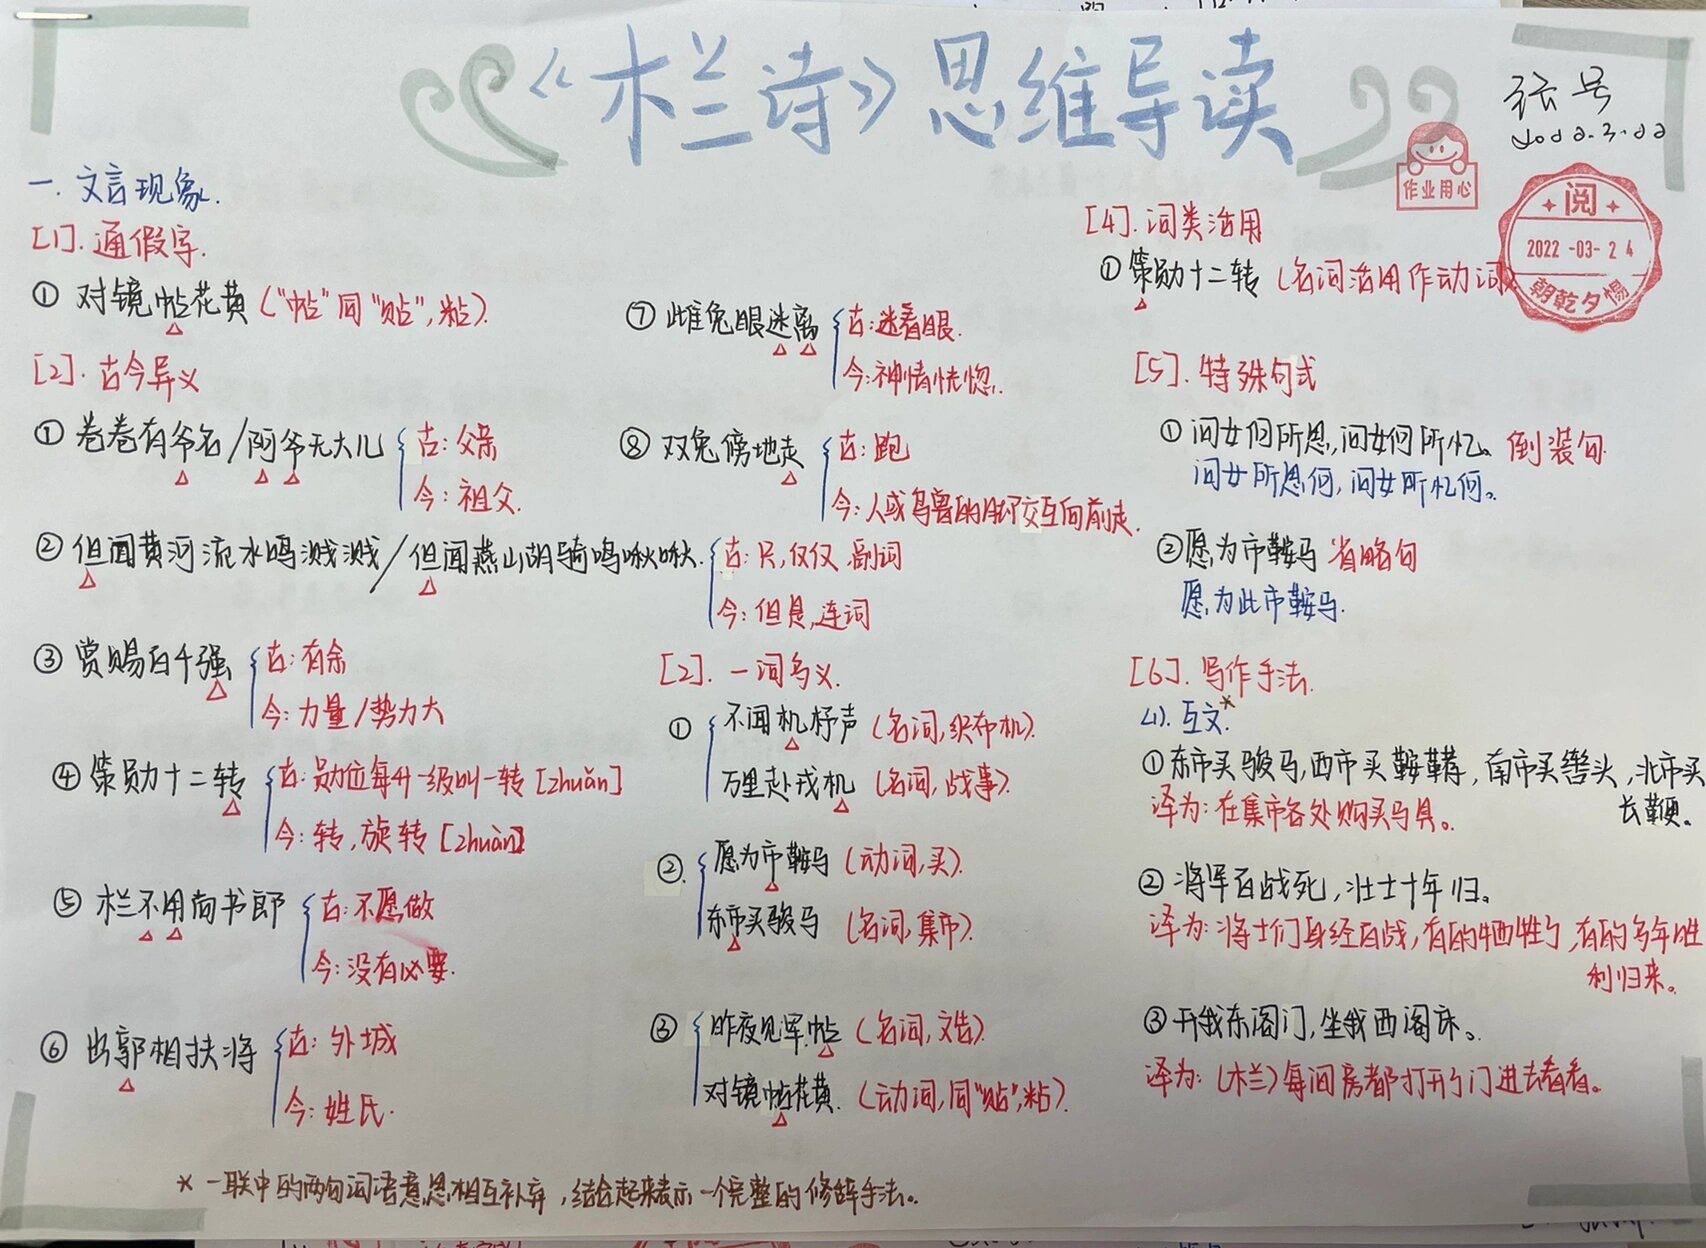 《木兰诗》思维导读
张号
2022.3.22
作业用心
阅
2022-03-24
朝乾夕惕
一.文言现象.
[1].通假字.
①对镜帖花黄("帖"同"贴",粘).
[2].古今异义
①卷卷有爷名/阿爷无大儿
古:父亲
今:祖父.
②但闻黄河流水鸣溅溅/但闻燕山胡骑鸣啾啾.
古:只,仅仅,副词
今:但是,连词
③赏赐百千强
古:有余
今:力量/势力大
④策勋十二转
古:勋位每升一级叫一转[zhuǎn]
今:转,旋转[zhuàn]
⑤木兰不用尚书郎
古:不愿做
今:没有必要.
⑥出郭相扶将
古:外城
今:姓氏.
⑦雌兔眼迷离
古:迷着眼.
今:神情恍惚.
⑧双兔傍地走
古:跑
今:人或鸟兽的脚交互向前走.
[2].一词多义.
①不闻机杼声(名词,织布机).
万里赴戎机(名词,战事).
②.愿为市鞍马(动词,买).
东市买骏马(名词,集市).
③昨夜见军帖(名词,文告).
对镜帖花黄.(动词,同"贴",粘).
[4].词类活用
①策勋十二转(名词活用作动词)
[5].特殊句式
①问女何所思,问女何所忆。倒装句.
问女所思何,问女所忆何。
②愿为市鞍马 省略句
愿为此市鞍马.
[6].写作手法.
(1).互文.*
①东市买骏马,西市买鞍鞯,南市买辔头,北市买
长鞭。
译为:在集市各处购买马具。
②将军百战死,壮士十年归。
译为:将士们身经百战,有的牺牲了,有的多年胜
利归来。
③开我东阁门,坐我西阁床。
译为:(木兰)每间房都打开了门进去看看。
*一联中的两句词语意思相互补充,结合起来表示一个完整的修辞手法。